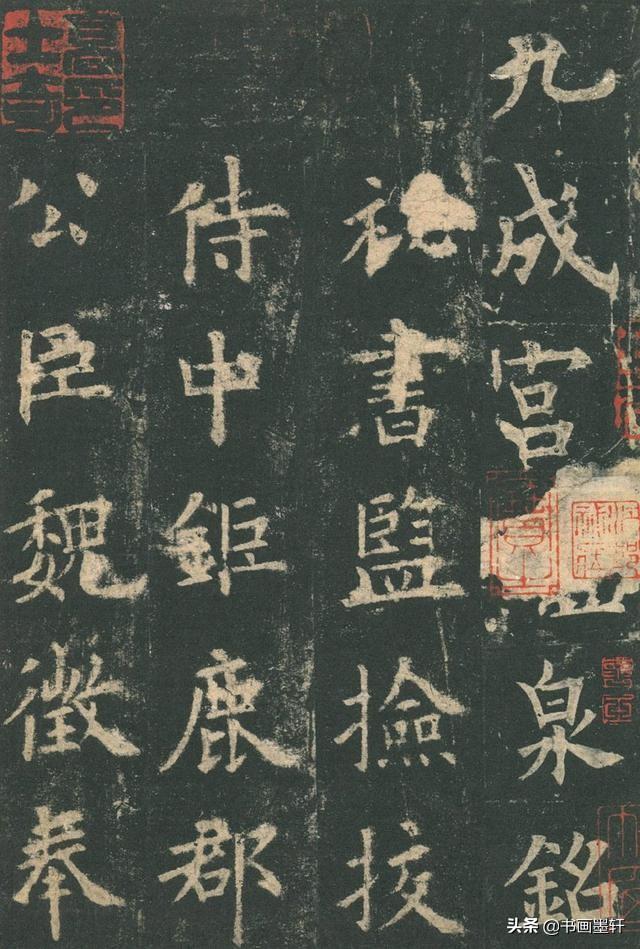 九成宮泉銘
祕書監撿挍
侍中鉅鹿郡
公臣魏徵奉
头条 @书画墨轩